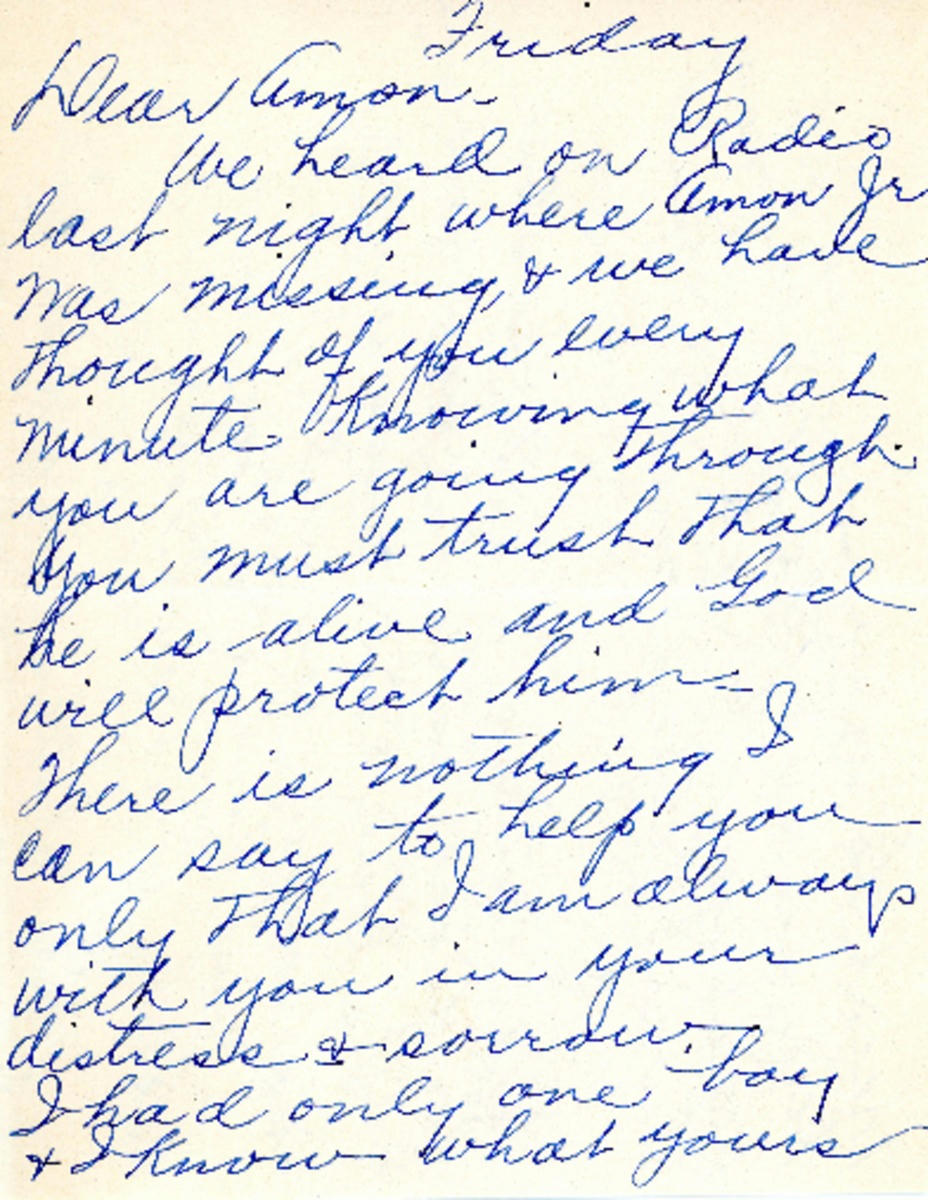 Friday
Dear Amon -
We heard on Radio
last night where Amon Jr
was missing, & we have
thought of you every
minute Knowing what
you are going through.
You must trust that
he is alive and God
will protect him -
There is nothing I
can say to help you
only that I am always
with you in your
distress & sorrow.
I had only one boy
& I know what yours